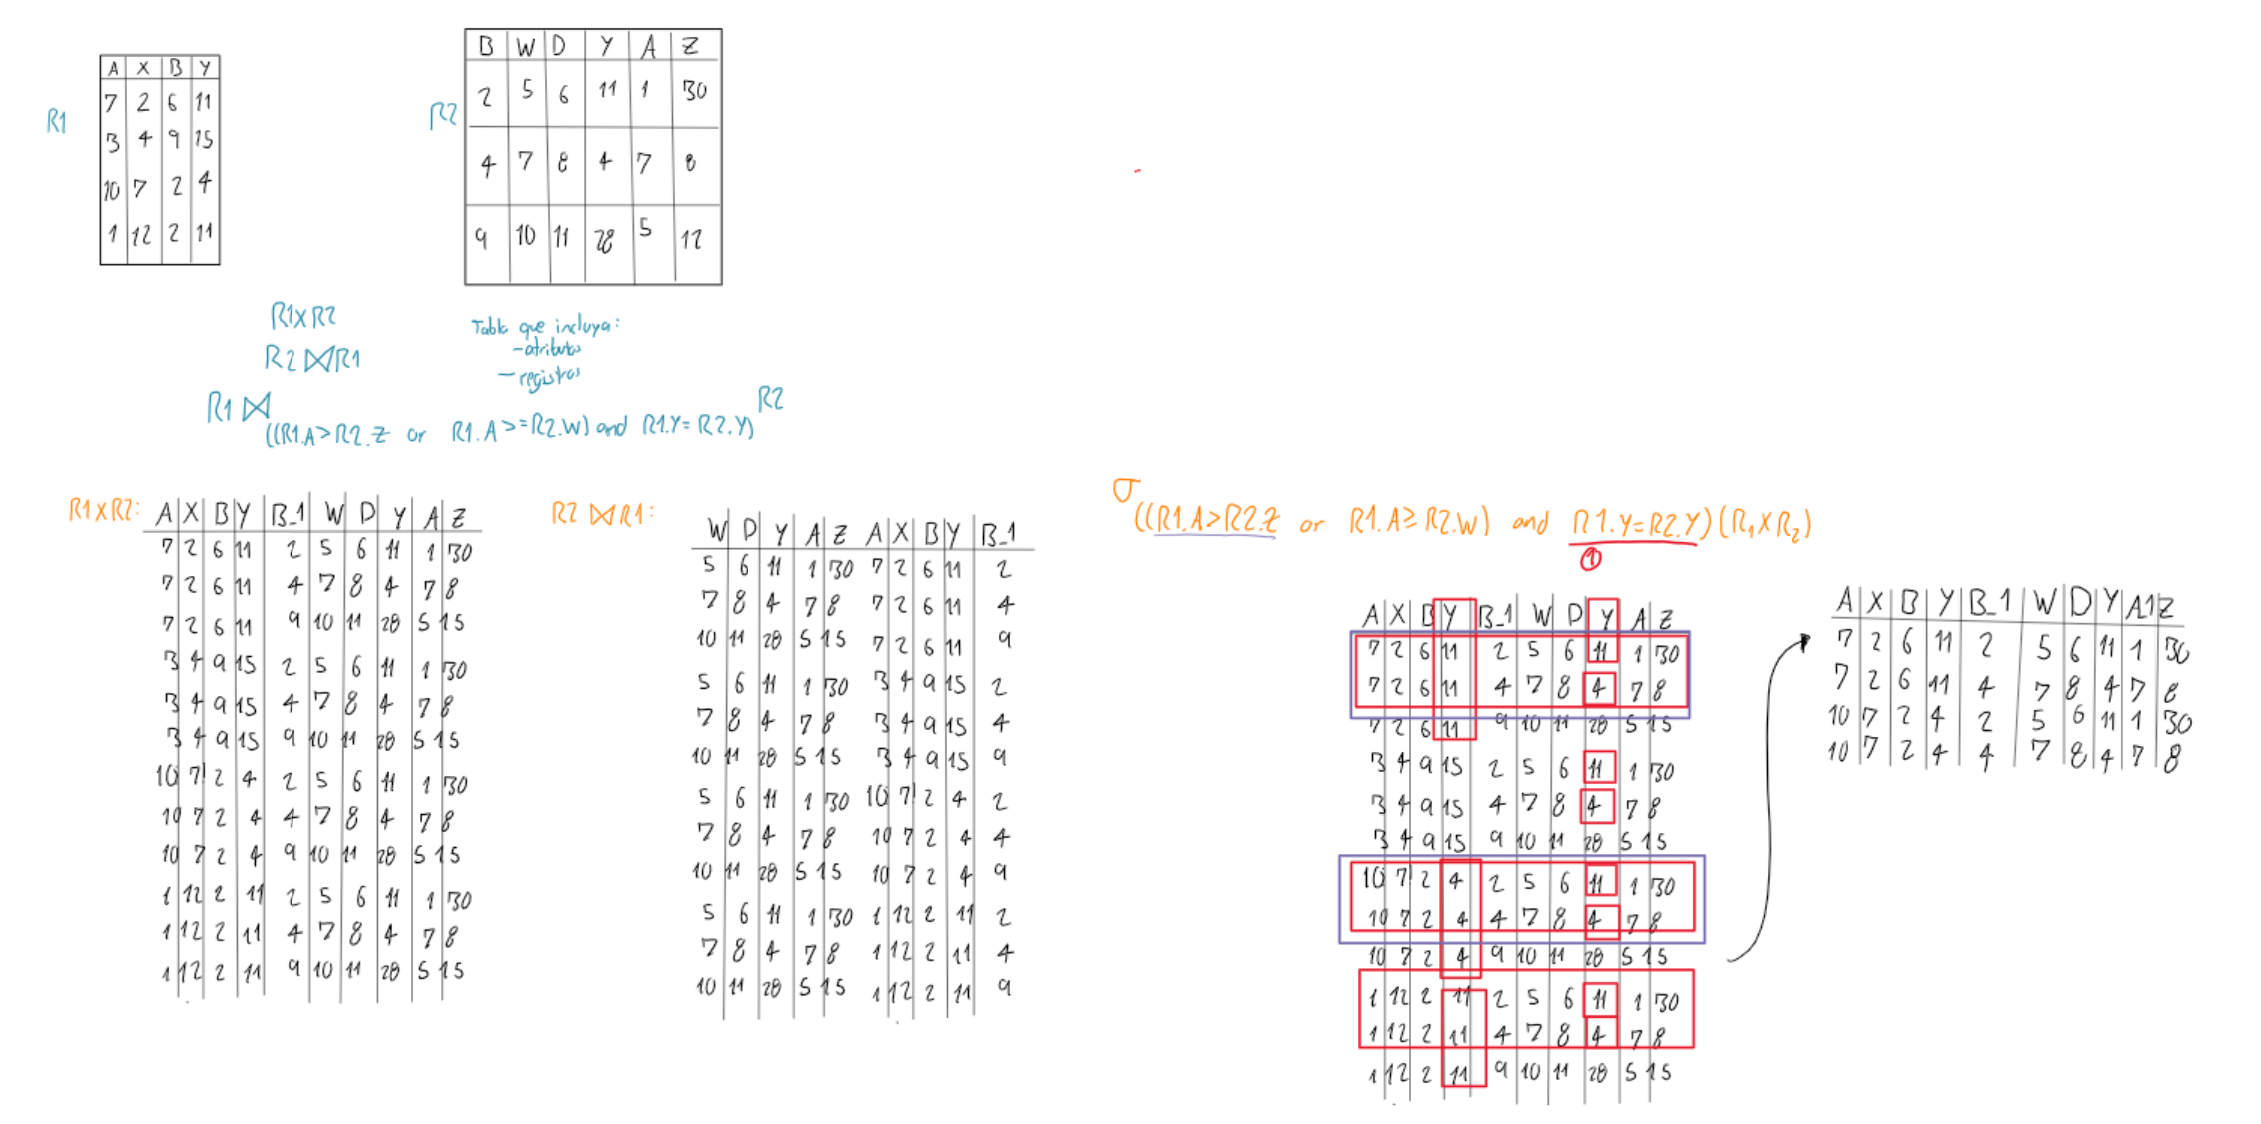 R1
A X B Y
7 2 6 11
3 4 9 15
10 7 2 4
1 12 2 11
R2
B W D Y A Z
2 5 6 11 1 30
4 7 8 4 7 8
9 10 11 28 5 12
R1XR2
R2 ⋈ R1
R1 ⋈ ((R1.A>R2.Z or R1.A>=R2.W) and R1.Y=R2.Y) R2
Tabla que incluya:
-atributos
-registros
R1XR2:
A X B Y B_1 W D Y A Z
7 2 6 11 2 5 6 11 1 30
7 2 6 11 4 7 8 4 7 8
7 2 6 11 9 10 11 28 5 15
3 4 9 15 2 5 6 11 1 30
3 4 9 15 4 7 8 4 7 8
3 4 9 15 9 10 11 28 5 15
10 7 2 4 2 5 6 11 1 30
10 7 2 4 4 7 8 4 7 8
10 7 2 4 9 10 11 28 5 15
1 12 2 11 2 5 6 11 1 30
1 12 2 11 4 7 8 4 7 8
1 12 2 11 9 10 11 28 5 15
R2 ⋈ R1:
W D Y A Z A X B Y B_1
5 6 11 1 30 7 2 6 11 2
7 8 4 7 8 7 2 6 11 4
10 11 28 5 15 7 2 6 11 9
5 6 11 1 30 3 4 9 15 2
7 8 4 7 8 3 4 9 15 4
10 11 28 5 15 3 4 9 15 9
5 6 11 1 30 10 7 2 4 2
7 8 4 7 8 10 7 2 4 4
10 11 28 5 15 10 7 2 4 9
5 6 11 1 30 1 12 2 11 2
7 8 4 7 8 1 12 2 11 4
10 11 28 5 15 1 12 2 11 9
σ ((R1.A>R2.Z or R1.A≥R2.W) and R1.Y=R2.Y)(R1XR2)
1
A X B Y B_1 W D Y A Z
7 2 6 11 2 5 6 11 1 30
7 2 6 11 4 7 8 4 7 8
7 2 6 11 9 10 11 28 5 15
3 4 9 15 2 5 6 11 1 30
3 4 9 15 4 7 8 4 7 8
3 4 9 15 9 10 11 28 5 15
10 7 2 4 2 5 6 11 1 30
10 7 2 4 4 7 8 4 7 8
10 7 2 4 9 10 11 28 5 15
1 12 2 11 2 5 6 11 1 30
1 12 2 11 4 7 8 4 7 8
1 12 2 11 9 10 11 28 5 15
A X B Y B_1 W D Y A1 Z
7 2 6 11 2 5 6 11 1 30
7 2 6 11 4 7 8 4 7 8
10 7 2 4 2 5 6 11 1 30
10 7 2 4 4 7 8 4 7 8